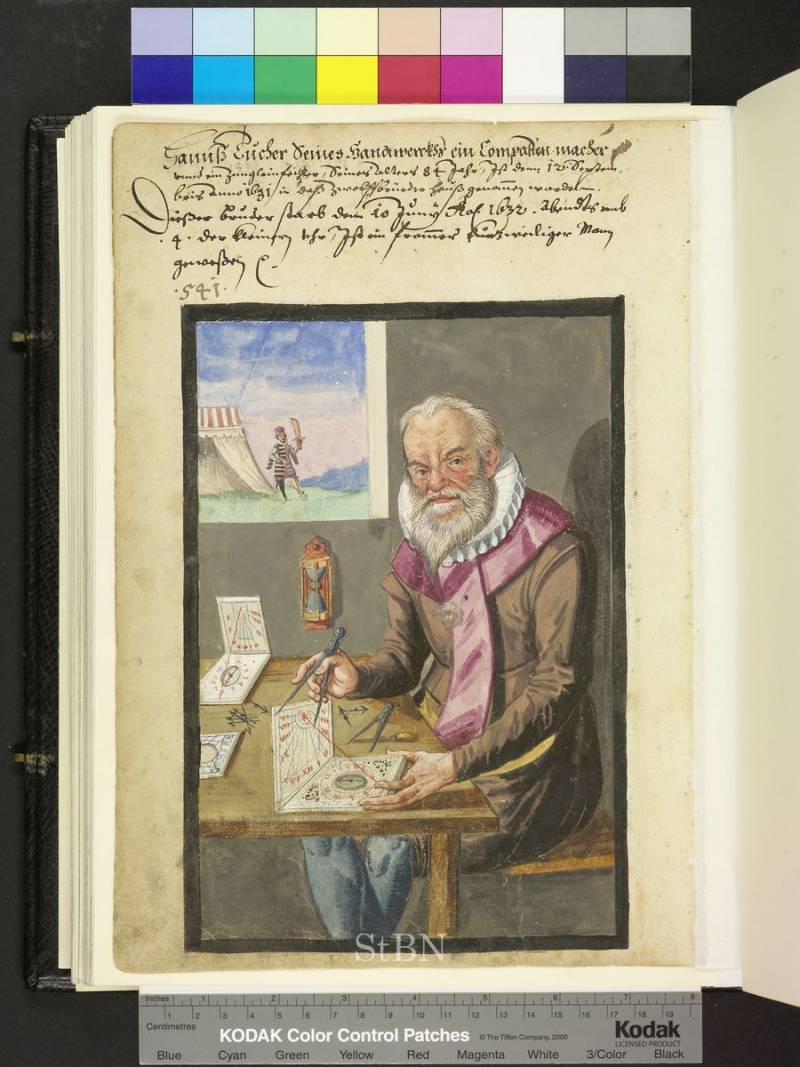 Hannß Tucher Seines Handtwerckhs ein Compasten macher
unnd ein Zünglein Seines alters 84 Jahr, Ist denn 12 Septem
bris Anno 1631 in daß Zwölffbrüder Hauß genommen worden.
Dießer bruder starb denn 10 Junÿ A 1632. Abendts umb
. 4 . der kleinern Uhr, Ist ein frommer kurtzweiliger Mann
geweßen
. 541 .
StBN
Inches 1 2 3 4 5 6 7 8
Centimetres 1 2 3 4 5 6 7 8 9 10 11 12 13 14 15 16 17 18 19
KODAK Color Control Patches © The Tiffen Company, 2000 Kodak
LICENSED PRODUCT
Blue Cyan Green Yellow Red Magenta White 3/Color Black